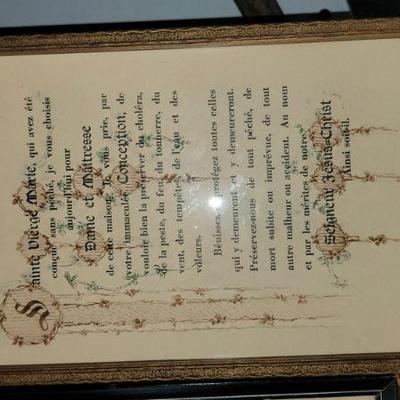 Sainte Vierge Marie, qui avez été
conçue sans péché, je vous choisis
aujourd'hui pour
Dame et Maîtresse
de cette maison. Je vous prie, par
votre immaculée Conception, de
vouloir bien la préserver du choléra,
de la peste, du feu, du tonnerre, du
vent, des tempêtes, de l'eau et des
voleurs.
Bénissez, protégez toutes celles
qui y demeurent et y demeureront.
Préservez-nous de tout péché, de
mort subite ou imprévue, de tout
autre malheur ou accident. Au nom
et par les mérites de notre
Seigneur Jésus-Christ
Ainsi soit-il.